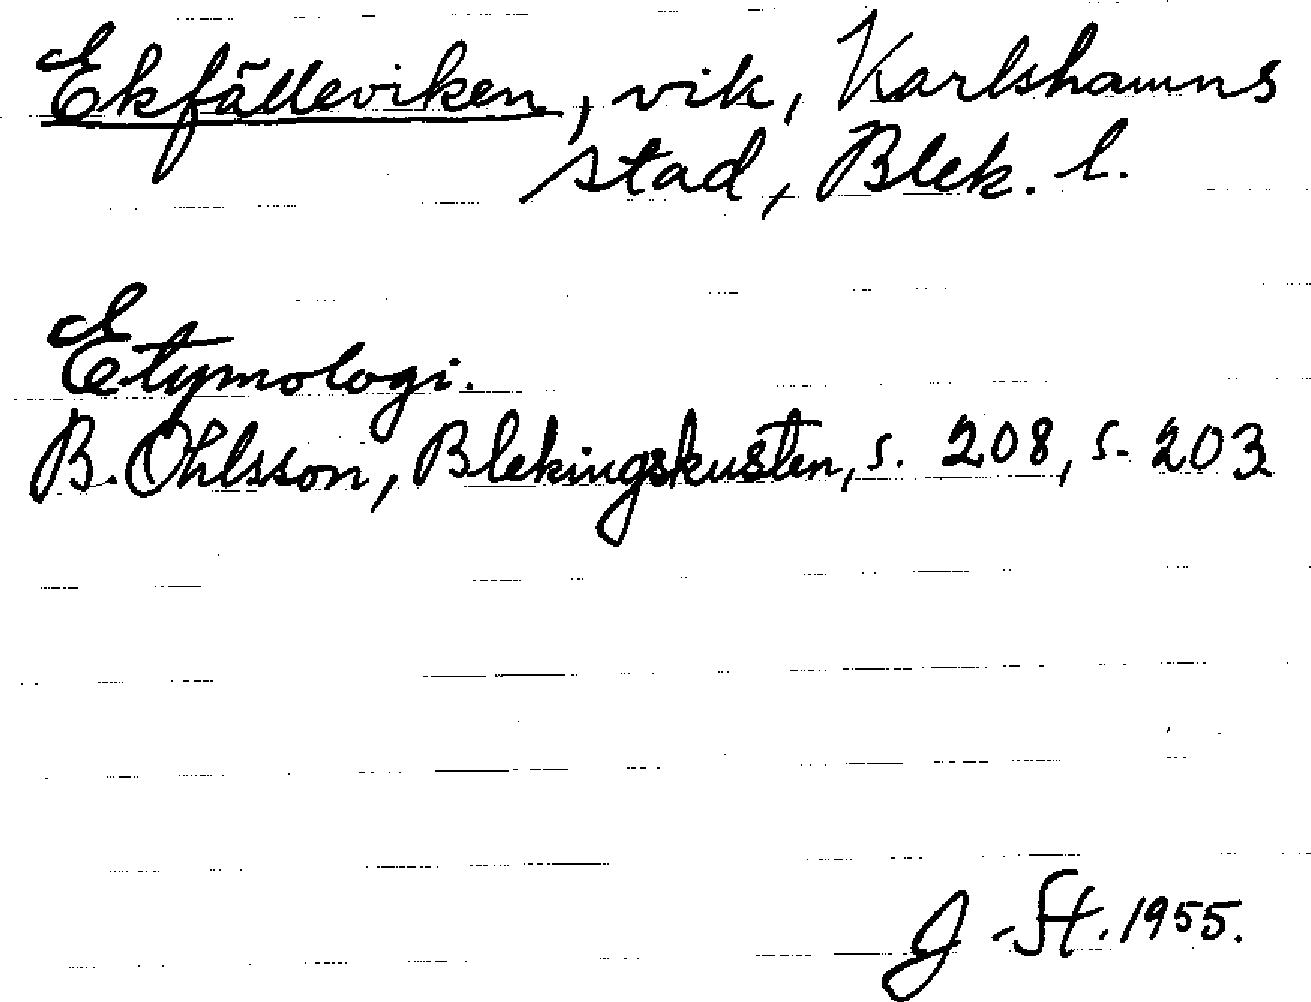 Ekfälleviken, vik, Karlshamns
stad, Blek. l.
Etymologi.
B. Ohlsson, Blekingskusten, s. 208, s. 203
J-St. 1955.